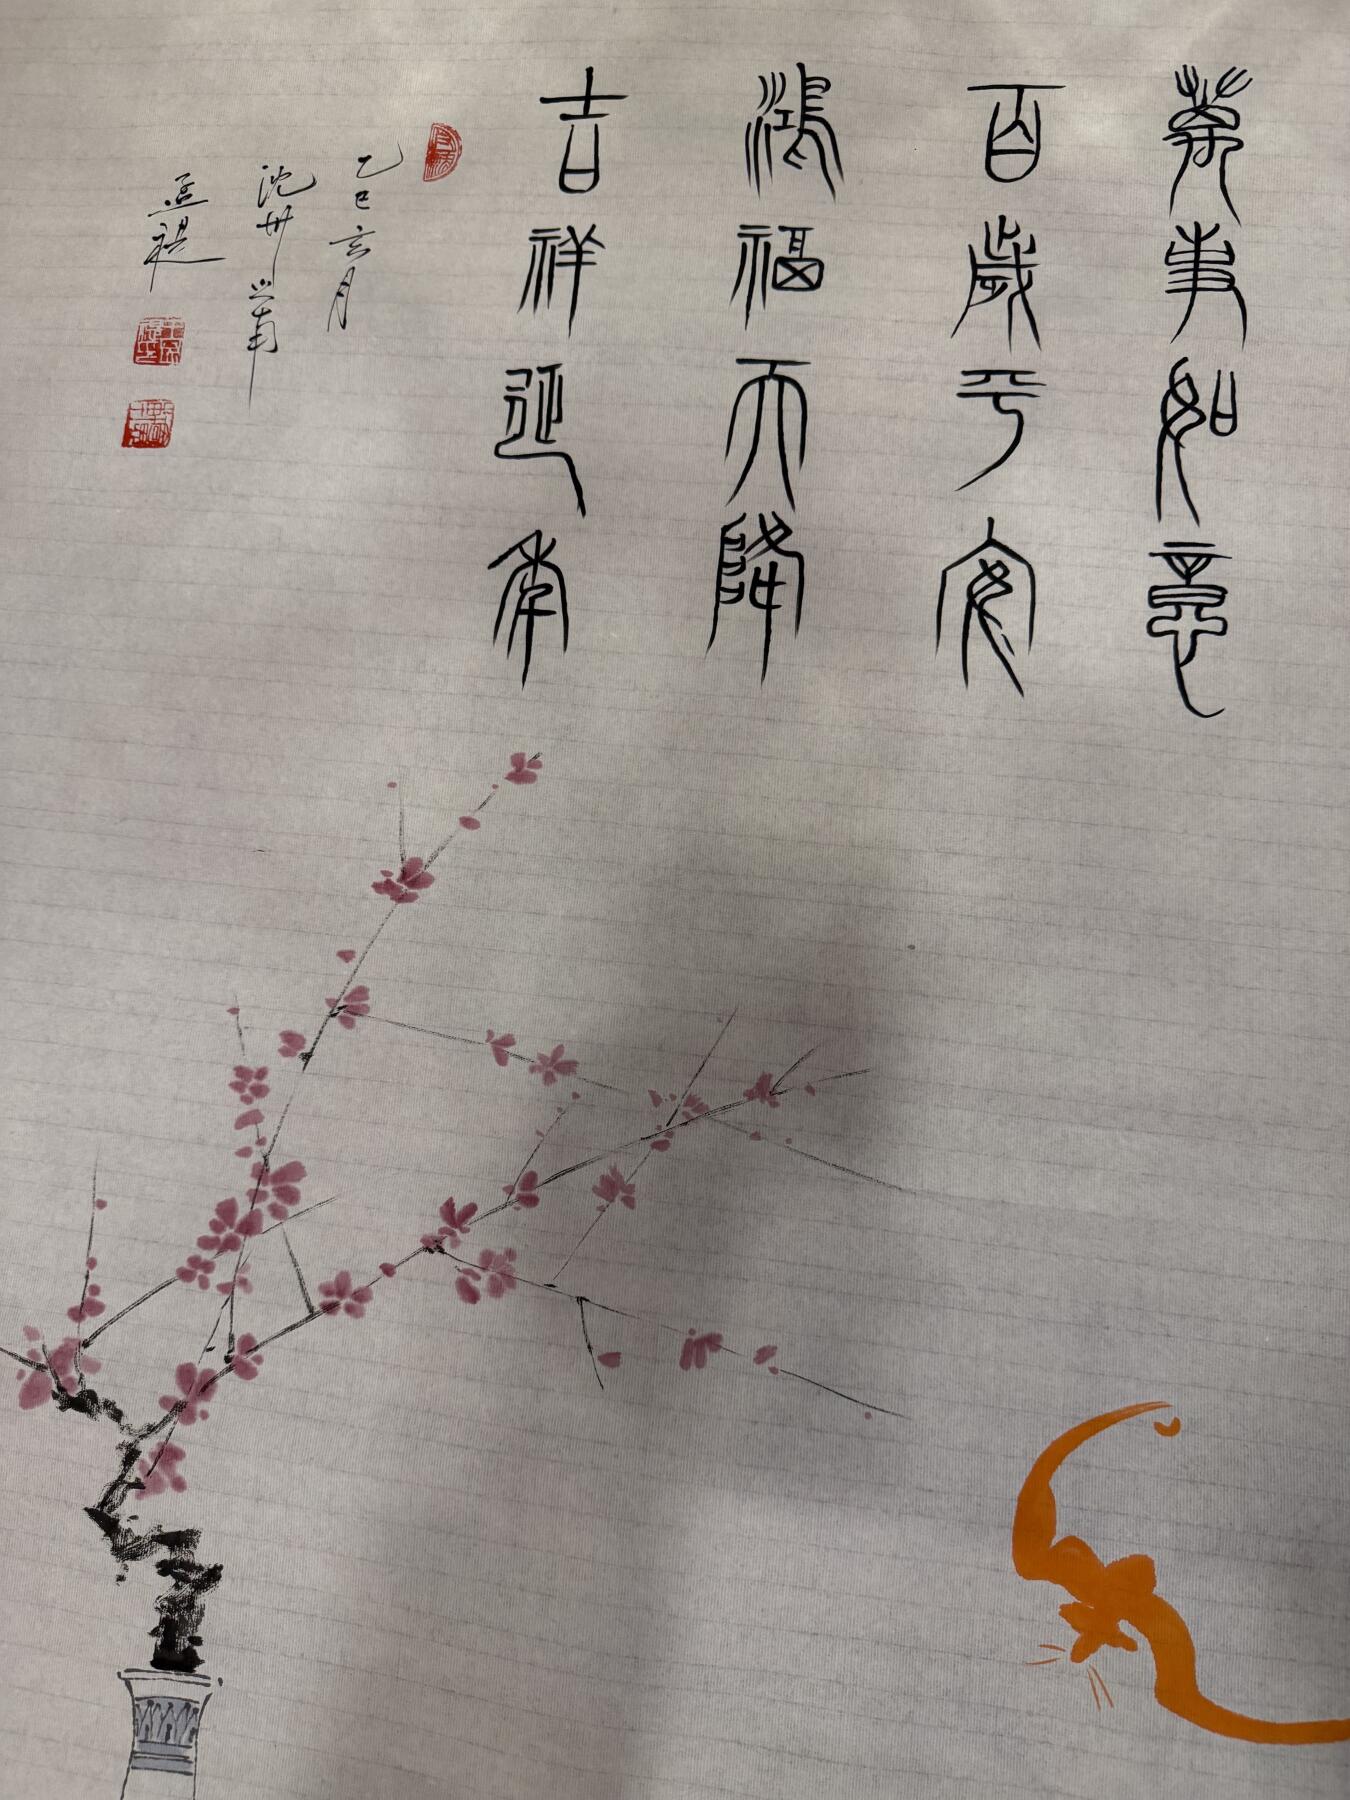 萬事如意
百歲平安
鴻福天降
吉祥延年
乙巳玄月
沈州
孟